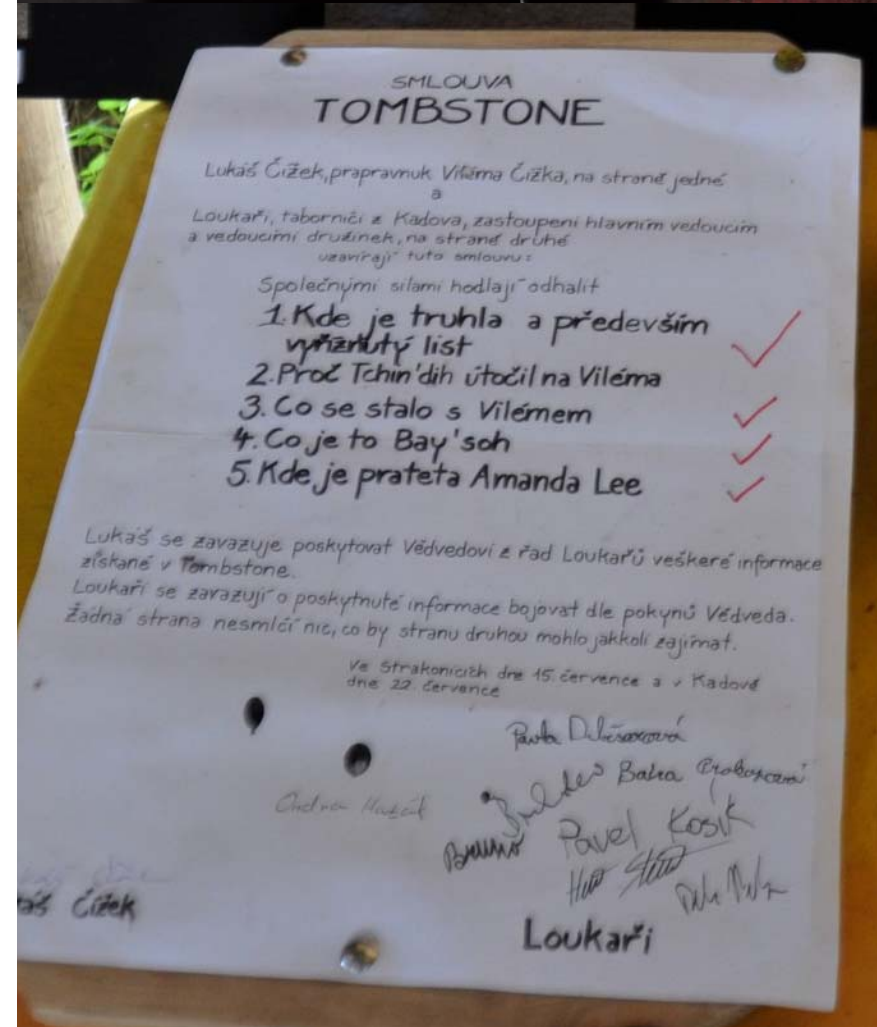 SMLOUVA
TOMBSTONE
Lukáš Čížek, prapravnuk Viléma Čížka, na straně jedné
a
Loukaři, táborníci z Kadova, zastoupení hlavním vedoucím
a vedoucími družinek, na straně druhé
uzavírají tuto smlouvu:
Společnými silami hodlají odhalit
1. Kde je truhla a především
vyříznutý list
2. Proč Tchin'dih útočil na Viléma
3. Co se stalo s Vilémem
4. Co je to Bay'soh
5. Kde je prateta Amanda Lee
Lukáš se zavazuje poskytovat Vědvedovi z řad Loukařů veškeré informace
získané v Tombstone.
Loukaři se zavazují o poskytnuté informace bojovat dle pokynů Vědveda.
Žádná strana nesmlčí nic, co by stranu druhou mohlo jakkoli zajímat.
Ve Strakonicích dne 15. července a v Kadově
dne 22. července
Pavla
Bára
Bruno Pavel Kosík
áš Čížek
Loukaři